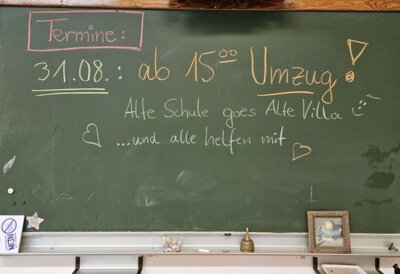 Termine:
31.08.: ab 15⁰⁰ Umzug!
Alte Schule goes Alte Villa
...und alle helfen mit